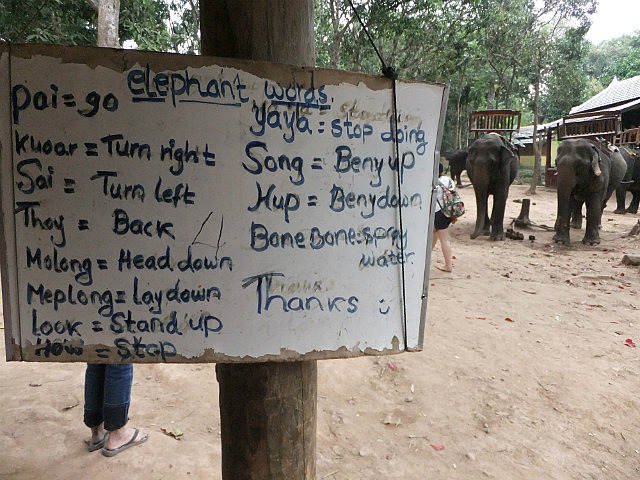 elephant words.
Pai = go
Kuoar = Turn right
Sai = Turn left
Thoy = Back
Molong = Head down
Meplong = Lay down
Look = Stand up
How = Stop
yaya = stop doing
Song = Beny up
Hup = Beny down
Bone Bone = spray
water
Thanks